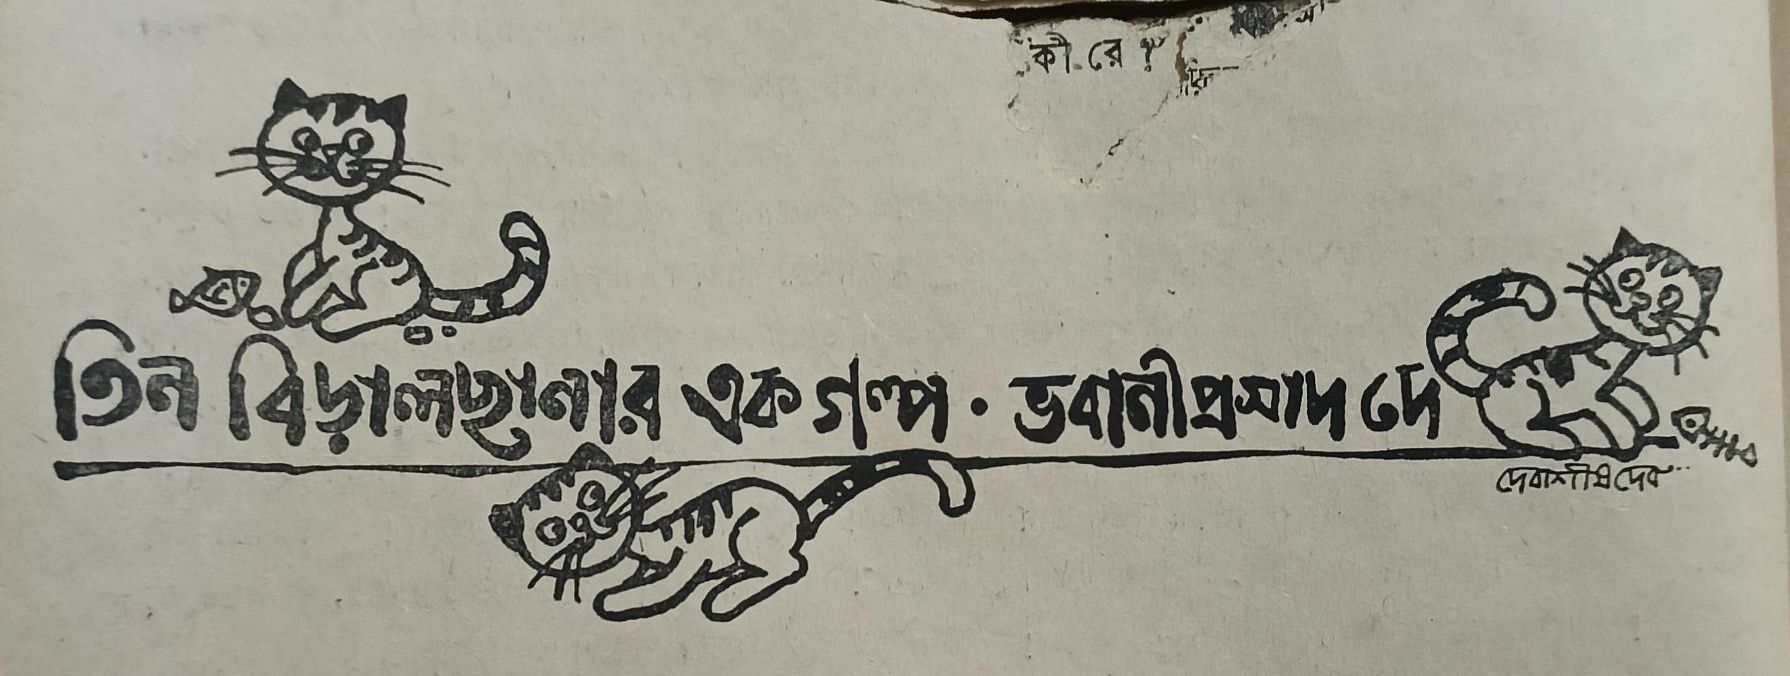 কী রে?
তিন বিড়ালছানার এক গল্প · ভবানীপ্রসাদ দে
দেবাশীষ দেব